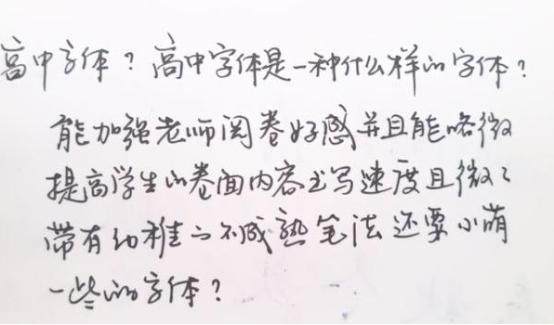 高中字体？高中字体是一种什么样的字体？
能加强老师阅卷好感并且能略微
提高学生的卷面内容书写速度且微微
带有幼稚的不成熟笔法还要小萌
一些的字体？